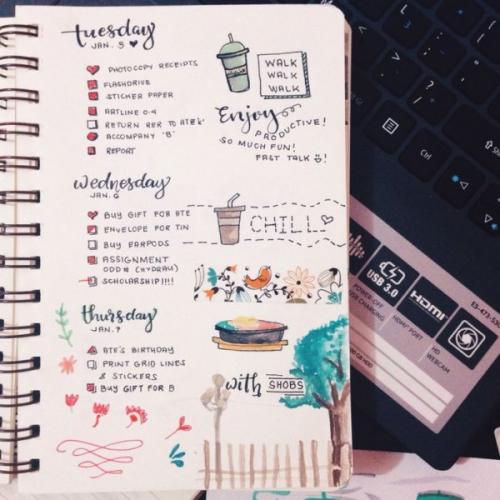 tuesday
JAN. 5
PHOTOCOPY RECEIPTS
FLASHDRIVE
STICKER PAPER
ARTLINE 0.4
RETURN RER TO ATE'S
ACCOMPANY 'B'
REPORT
WALK
WALK
WALK
Enjoy
PRODUCTIVE!
SO MUCH FUN!
FAST TALK
wednesday
JAN. 6
BUY GIFT FOR ATE
ENVELOPE FOR TIN
BUY EARPODS
ASSIGNMENT
ODD # (HYDRAW)
SCHOLARSHIP!!!
CHILL
thursday
JAN. 7
ATE'S BIRTHDAY
PRINT GRID LINES
& STICKERS
BUY GIFT FOR B
with SHOBS
Ctrl
Alt
USB 3.0
HDMI
POWER-OFF
USB CHARGING
HDMI® PORT
HD
WEBCAM